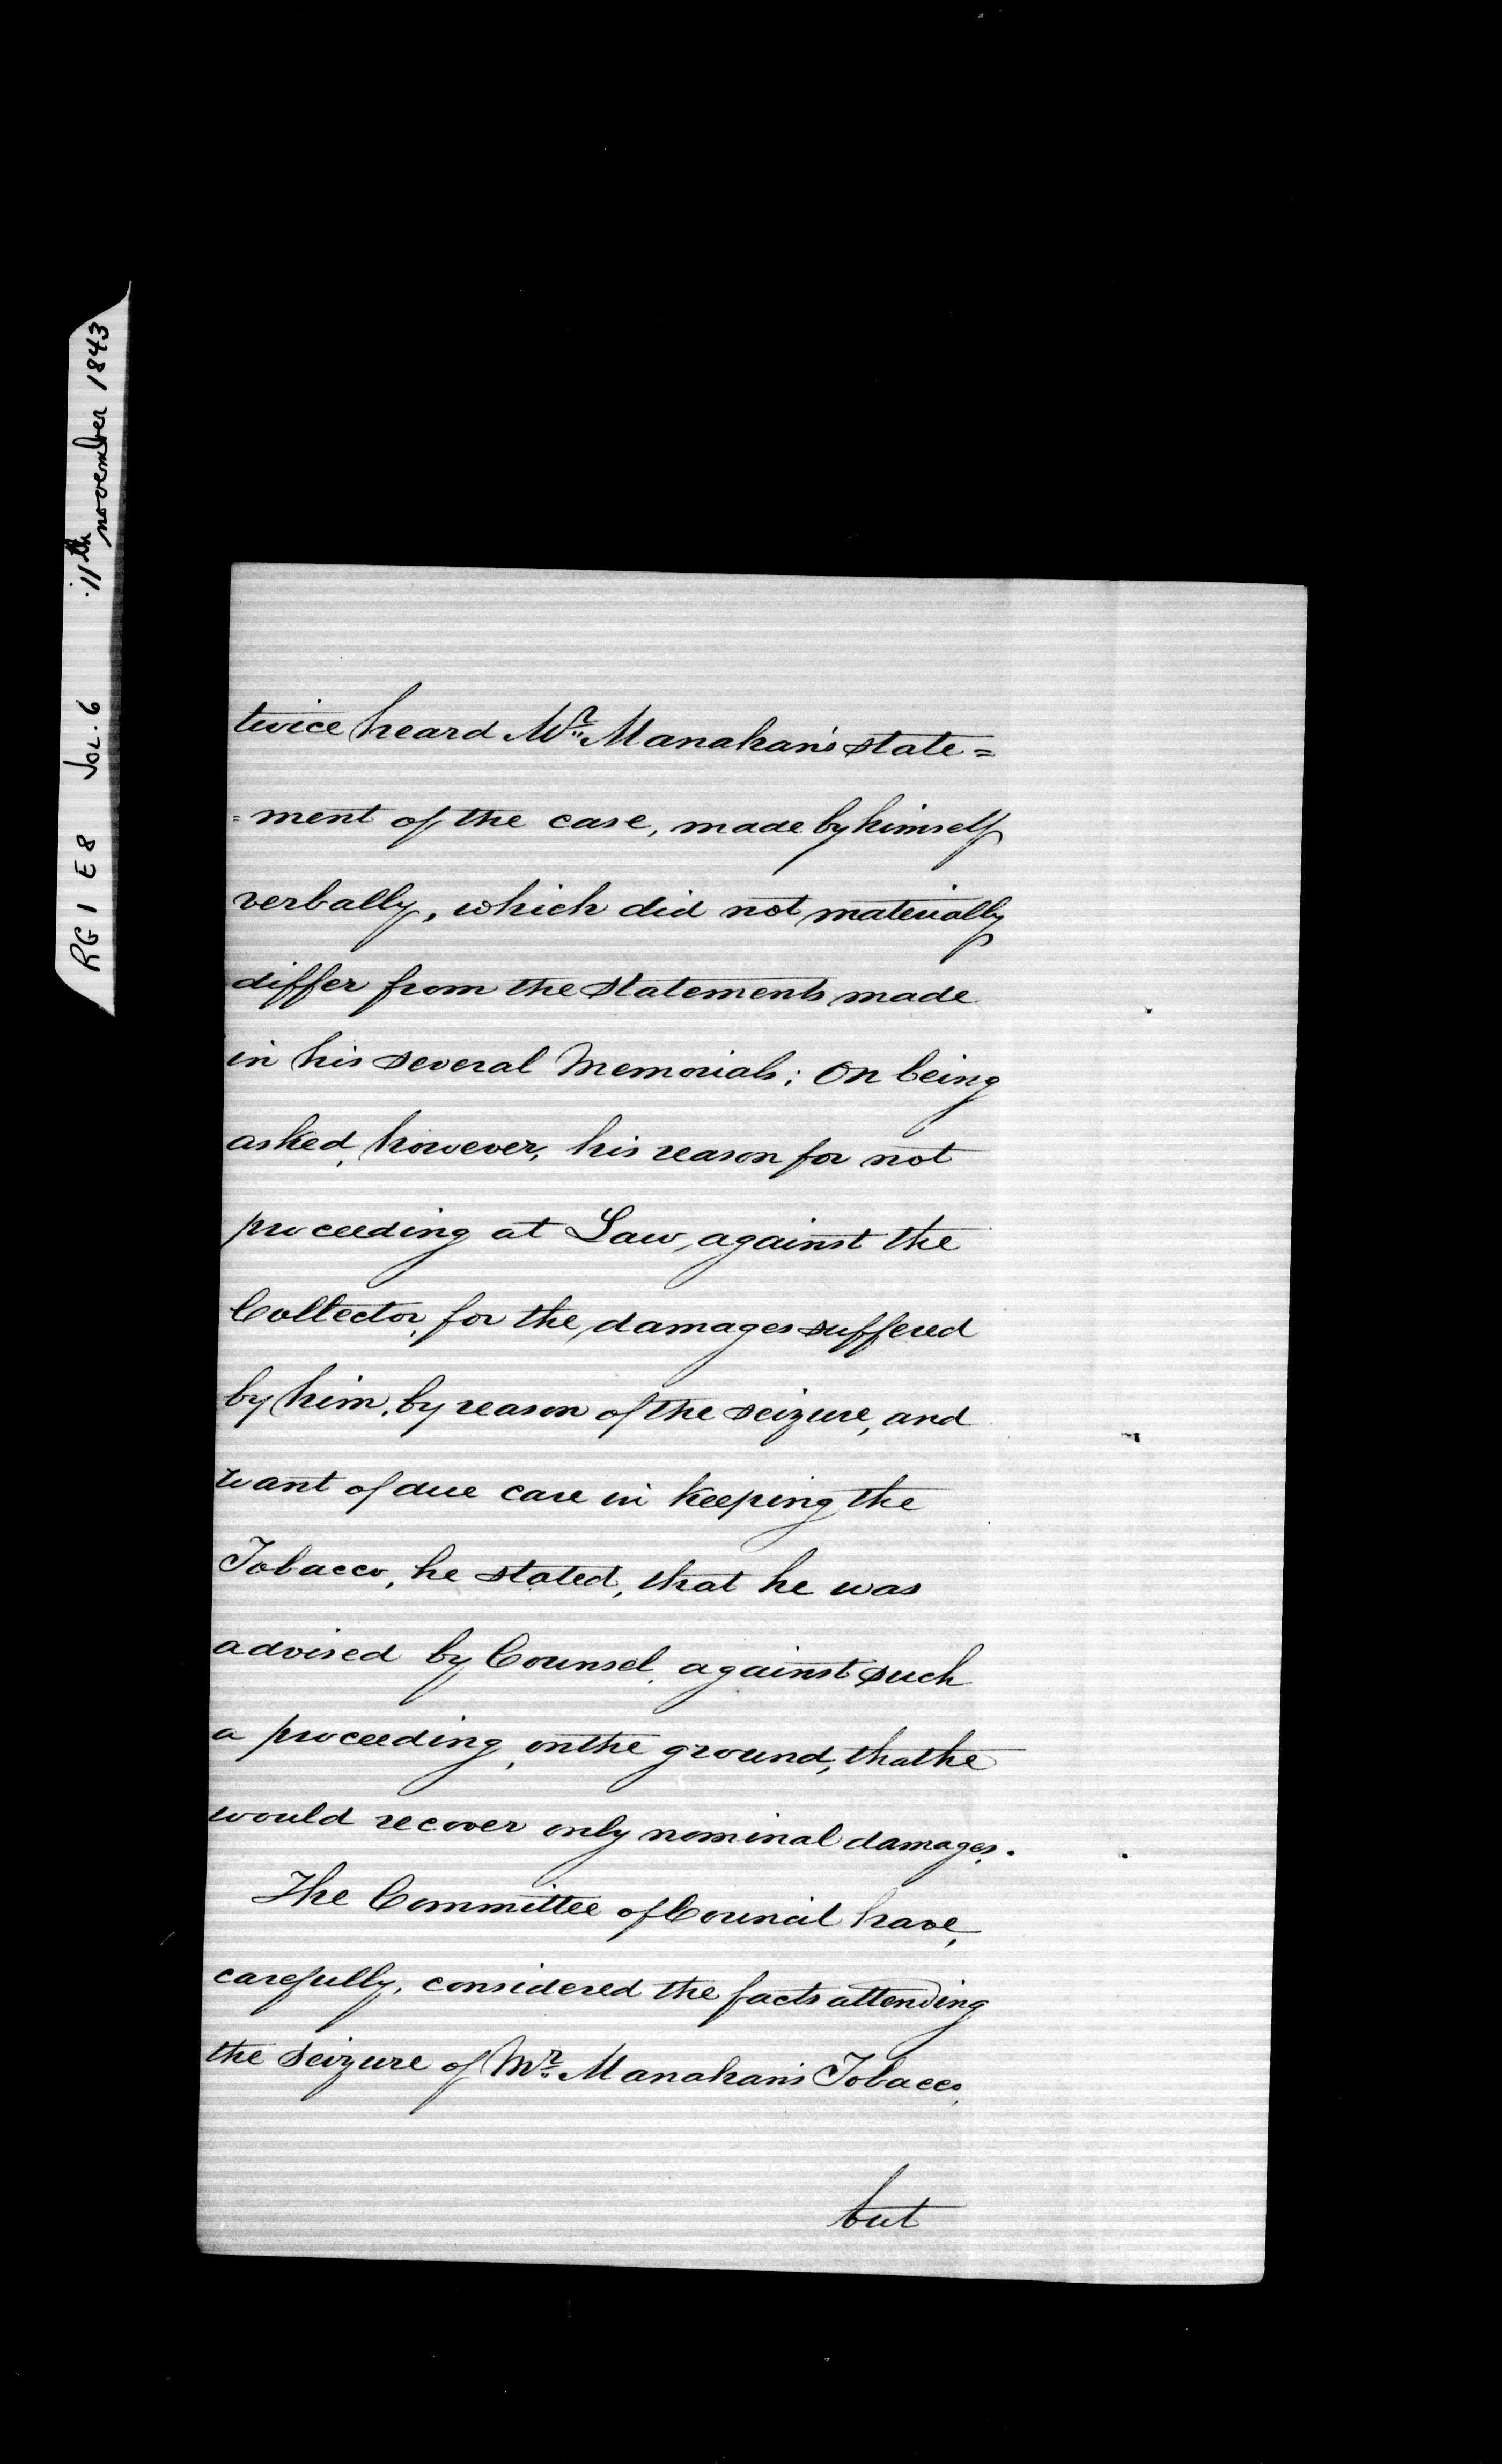 RG 1 E 8 Vol. 6 11th november 1843
twice heard Mr. Manahan's state=
=ment of the case, made by himself
verbally, which did not materially
differ from the statements made
in his several Memorials; On being
asked, however, his reason for not
proceeding at Law, against the
Collector, for the damages suffered
by him, by reason of the seizure, and
want of due care in keeping the
Tobacco, he stated, that he was
advised by Counsel, against such
a proceeding, on the ground, that he
would recover only nominal damages.
The Committee of Council have,
carefully, considered the facts attending
the seizure of Mr. Manahan's Tobacco,
but